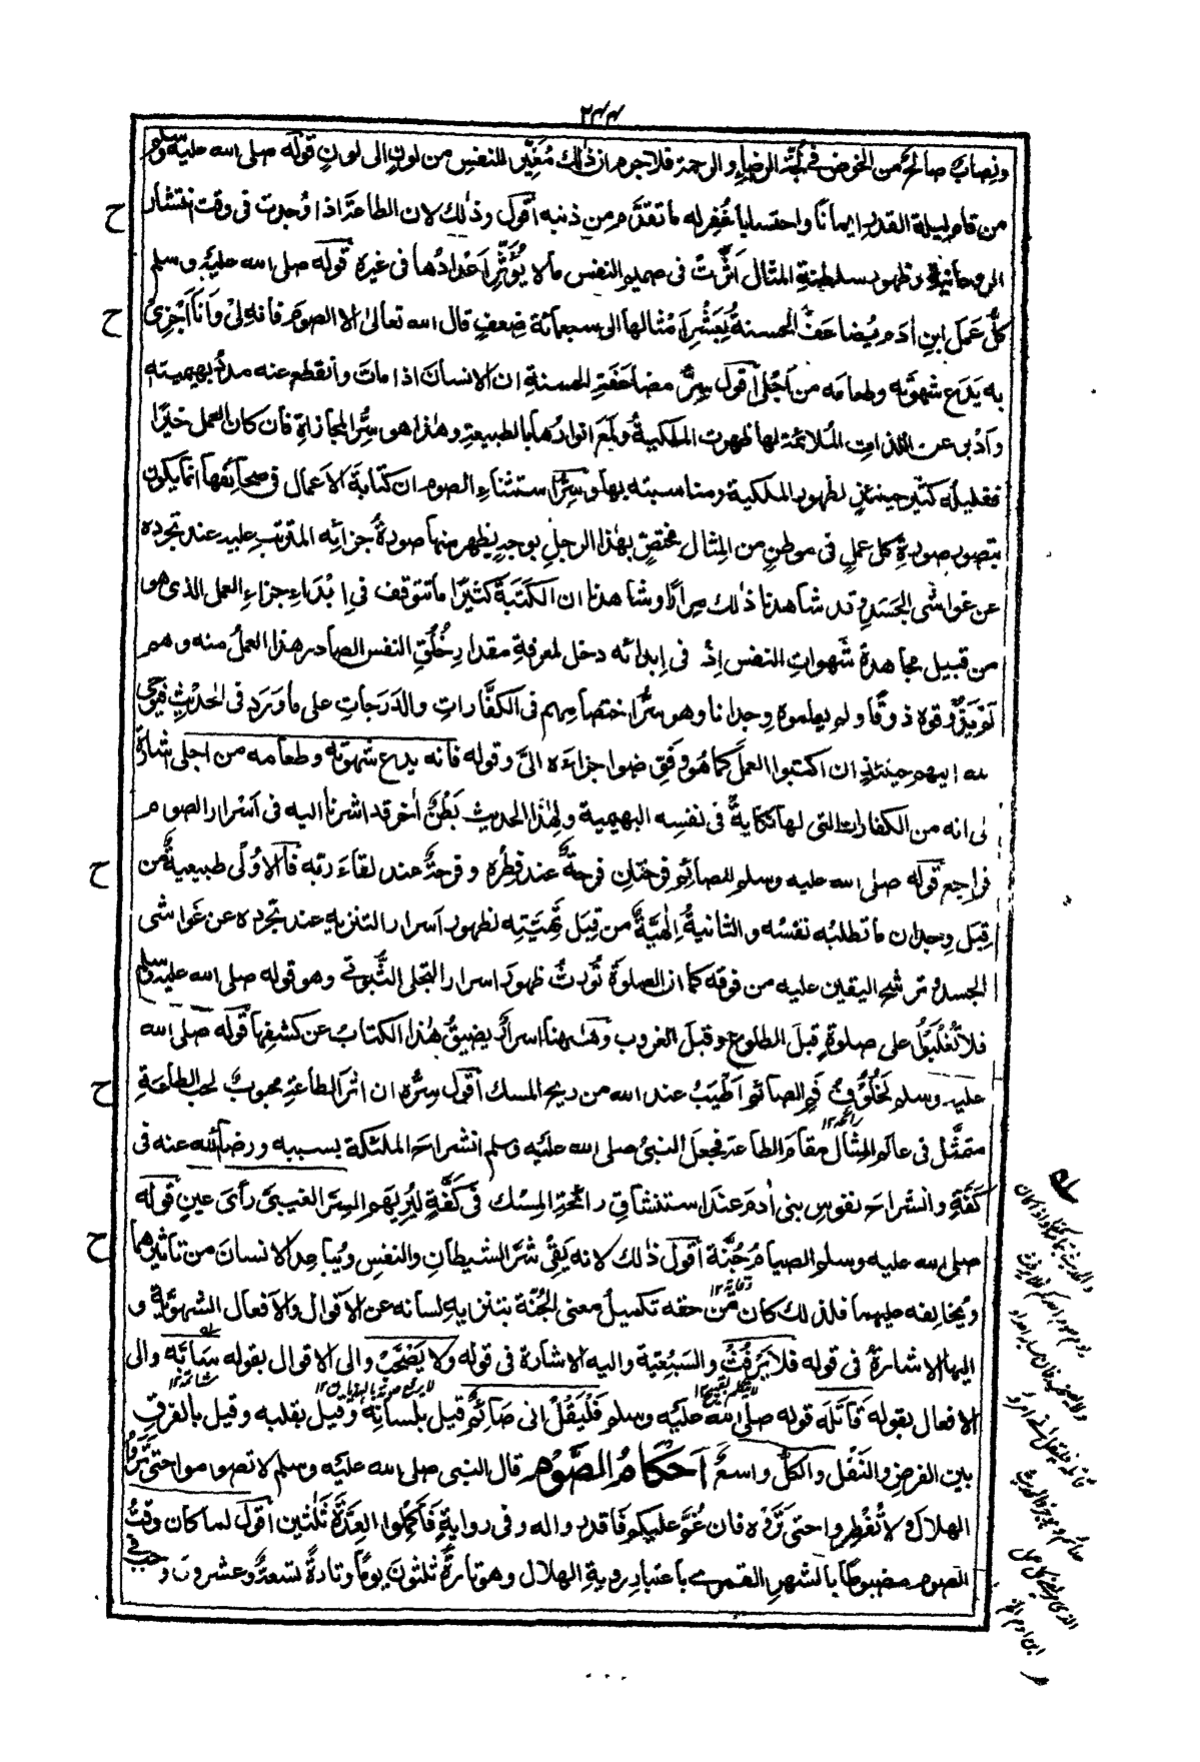 ٢٤٤
ونصاب صالح من الخوض فى لجة الرضاء والرحمة فلاجرم ان ذلك مُغَيِّر للنفس من لونٍ الى لونٍ قوله صلى الله عليه وسلم
من قام ليلة القدر ايمانًا واحتسابا غُفِر له ما تقدَّم من ذنبه أقول وذلك لان الطاعة اذا وُجدت فى وقت انتشار
الروحانية وظهور سلطنة المثال اَثَّرتْ فى صميم النفس مالا يُؤَثِّر اَعْدادُها فى غيره قوله صلى الله عليه وسلم
كلُّ عَمَل ابن اٰدم يُضاعَفُ الحسنةُ بِعَشْرِ اَمْثالها الى سبعمائة ضِعفٍ قال الله تعالى الا الصوم فانه لِىْ وَاَنَا اَجْزِىْ
به يَدَع شهوتَه وطعامَه من اَجْلِى أقول سِرُّ مضاعَفَةِ الحسنةِ ان الانسان اذا مات وانقطع عنه مددُ بهيميته
وادْبَرَ عن اللذات المُلائمة لها ظهرت الملكيةُ ولَمَعَ انوارُها بالطبيعة وهذا هو سِرُّ المجازاة فان كان العمل خيرًا
فقليله كثير حينئذٍ لظهور الملكية ومناسبته بها وسِرُّ استثناءِ الصوم ان كتابة الاعمال فى صحائفها انما يكون
بتصور صورةِ كل عملٍ فى موطنٍ من المِثال مختصٍ بهذا الرجل بوجهٍ يظهر منها صورةُ جزائه المترتب عليه عند تجرده
عن غواشى الجَسَد وقد شاهدنا ذلك مِرارًا وشاهدنا ان الكَتَبَةَ كثيرًا ما تتوقف فى اِبْدَاءِ جزاءِ العمل الذى هو
من قبيل مجاهدة شهوات النفس اِذْ فى اِبدائه دخل لمعرفةِ مقدارِ خُلُقِ النفس الصادر هذا العملُ منه وهم
لم يذوقوه ذوقًا ولم يعلموه وجدانا وهو سِرُّ اختصامهم فى الكفَّاراتِ والدَرَجاتِ على ما وَرَدَ فى الحَدِيْثِ فيوحى
لله اليهم حينئذٍ ان اكتبوا العملَ كما هو وفَوِّضوا جزاءَه الىَّ وقوله فانه يدع شهوته وطعامه من اجلى اشارة
لى انه من الكفارات التى لها نكايةٌ فى نفسِه البهيمية ولهٰذا الحديث بَطْنٌ اٰخر قد اشرنا اليه فى اَسْرار الصوم
فراجع قوله صلى الله عليه وسلم للصائم فرحتان فرحةٌ عند فِطره وفرحةٌ عند لقاءَ ربّه فالاُوْلى طبيعيةٌ من
قِبَل وجدان ما تطلبه نفسُه والثانيةُ اِلٰهيَّةٌ من قِبَل تَهِيَّئِه لظهور اَسرار التنزيه عند تجرده عن غَواشى
الجسد وترشح اليقين عليه من فوقه كما ان الصلوة تُورِثُ ظهور اسرار التجلى الثُّبُوتِى وهو قوله صلى الله عليه وسلم
فلا تُغْلَبُوْا على صلوةٍ قبلَ الطلوع وقبلَ الغروب وهٰهنا اسرارٌ يضيقُ هٰذا الكتابُ عن كشفِها قوله صلى الله
عليه وسلم لَخُلُوْفُ فَمِ الصائم اَطْيَبُ عند الله من ريحِ المسك أقول سِرُّه ان اثر الطاعةِ محبوبٌ لحب الطاعةِ
متمثِّل فى عالم المثال مقام الطاعة فجعل النبى صلى الله عليه وسلم انشراح الملئكة بسببه ورضاالله عنه فى
كَفَّةٍ وانشراح نفوسِ بنى اٰدم عند استنشاقِ رائحةِ المِسْك فى كَفَّةٍ لِيُرِيَهم السِرَّ الغيبىَّ رأىَ عينٍ قوله
صلى الله عليه وسلم الصيامُ جُنَّة أقول ذلك لانه يَقِىْ شَرَّ الشيطانِ والنفسِ ويُباعِد الانسانَ من تاثيرهما
ويُخالِفه عليهما فلذلك كان من حقه تكميلُ معنى الجُنَّة بتنزيهِ لسانه عن الاقوال والافعال الشهويَّة و
اليها الاشارةُ فى قوله فلا يَرْفُثْ والسَبُعِيَّة واليه الاشارة فى قوله ولا يَصْخَبْ والى الاقوال بقوله سَابَّه والى
الافعال بقوله قَاتَلَه قوله صلى الله عليه وسلم فَلْيَقُلْ انى صَائِمٌ قيل بلسانِه وقيل بقلبه وقيل بالفرقِ
بين الفرضِ والنَفْل والكلُّ واسعٌ اَحكامُ الصَّوْم قال النبى صلى الله عليه وسلم لا تصوموا حتى تَرَوُا
الهلالَ ولا تُفْطِروا حتى تَرَوْه فان غُمَّ عليكم فَاقدروا له وفى روايةٍ فَاَكْمِلُوا العِدَّةَ ثَلٰثين أقول لما كان وقتُ
الصوم مضبوطًا بالشهرِ القمرى باعتبارِ رويةِ الهلال وهو تارةً ثلٰثون يومًا وتارةً تسعةٌ وعشرون وجب فى
ح
ح
ح
ح
ح
رائحة ١٢
وقاية ١٢